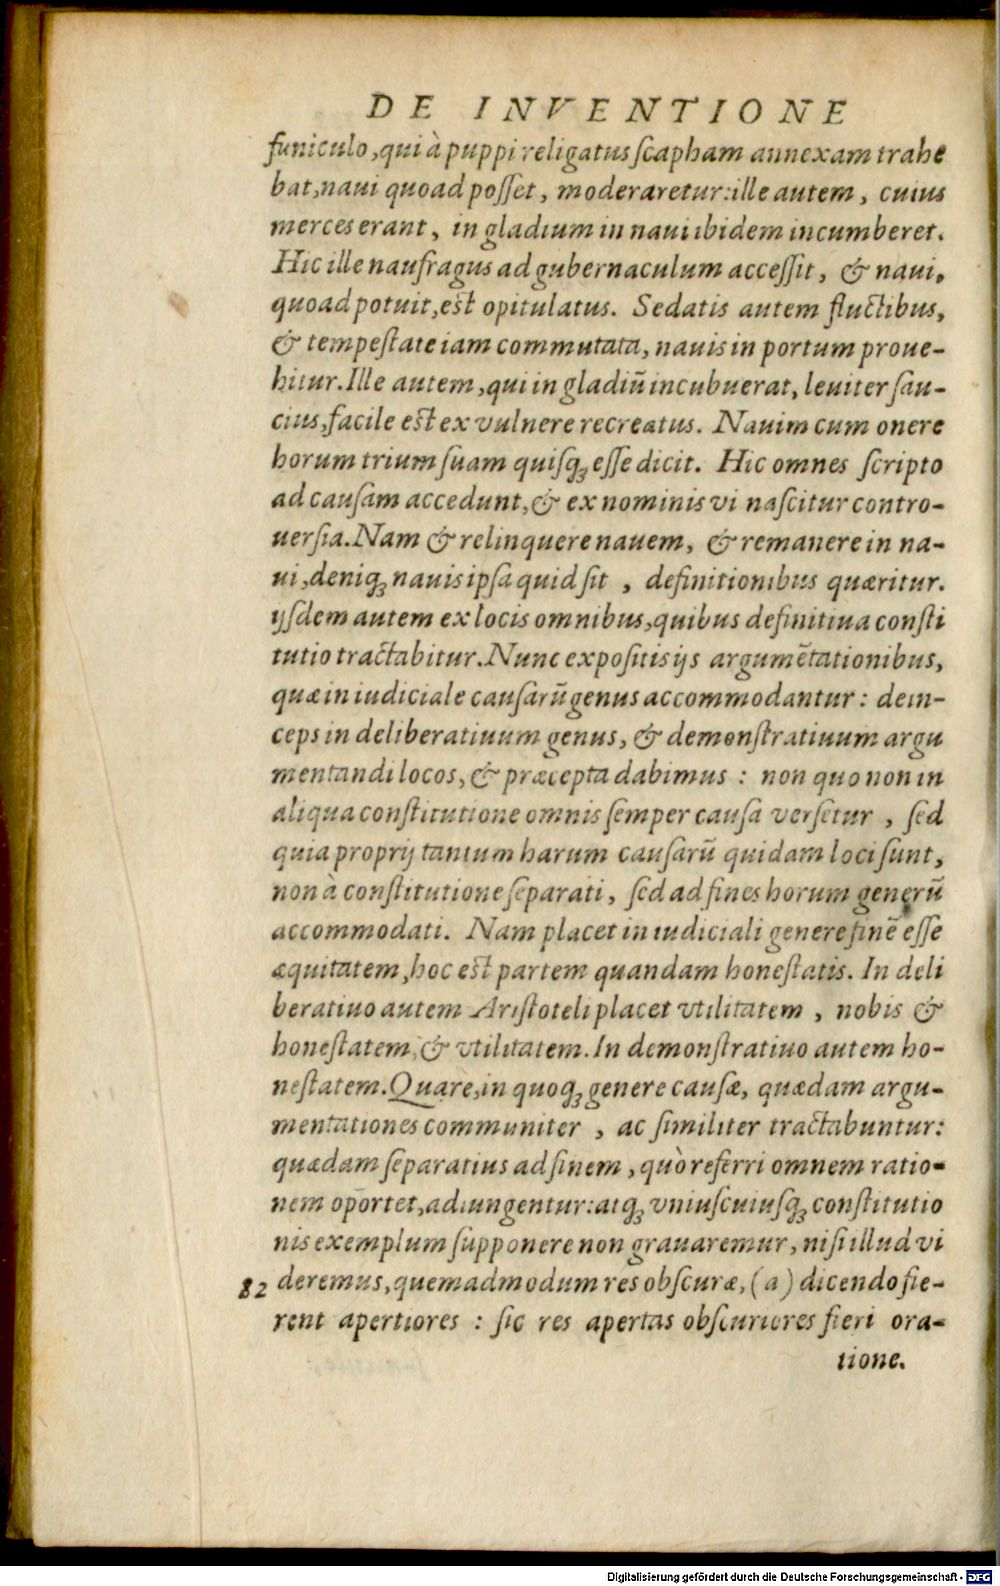 DE INVENTIONE
funiculo, qui à puppi religatus scapham annexam trahe
bat, naui quoad posset, moderaretur: ille autem, cuius
merces erant, in gladium in naui ibidem incumberet.
Hic ille naufragus ad gubernaculum accessit, & naui,
quoad potuit, est opitulatus. Sedatis autem fluctibus,
& tempestate iam commutata, nauis in portum proue-
hitur. Ille autem, qui in gladiū incubuerat, leuiter sau-
cius, facile est ex vulnere recreatus. Nauim cum onere
horum trium suam quisq; esse dicit. Hic omnes scripto
ad causam accedunt, & ex nominis vi nascitur contro-
uersia. Nam & relinquere nauem, & remanere in na-
ui, deniq; nauis ipsa quid sit, definitionibus quæritur.
ijsdem autem ex locis omnibus, quibus definitiua consti
tutio tractabitur. Nunc expositis ijs argumētationibus,
quæ in iudiciale causarū genus accommodantur: dein-
ceps in deliberatiuum genus, & demonstratiuum argu
mentandi locos, & præcepta dabimus: non quo non in
aliqua constitutione omnis semper causa versetur, sed
quia proprij tantum harum causarū quidam loci sunt,
non à constitutione separati, sed ad fines horum generū
accommodati. Nam placet in iudiciali genere finē esse
æquitatem, hoc est partem quandam honestatis. In deli
beratiuo autem Aristoteli placet vtilitatem, nobis &
honestatem, & vtilitatem. In demonstratiuo autem ho-
nestatem. Quare, in quoq; genere causæ, quædam argu-
mentationes communiter, ac similiter tractabuntur:
quædam separatius ad finem, quò referri omnem ratio-
nem oportet, adiungentur: atq; vniuscuiusq; constitutio
nis exemplum supponere non grauaremur, nisi illud vi
82 deremus, quemadmodum res obscuræ, (a) dicendo fie-
rent apertiores: sic res apertas obscuriores fieri ora-
tione.
Digitalisierung gefördert durch die Deutsche Forschungsgemeinschaft - DFG